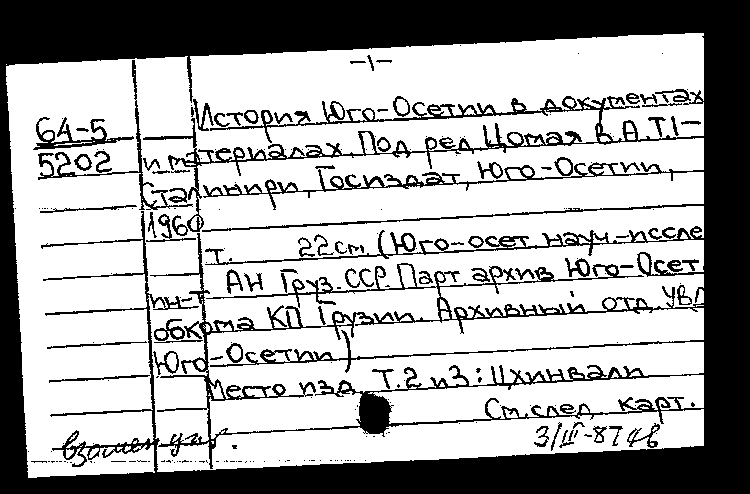 -1-
История Юго-Осетии в документах
64-5
5202
и материалах. Под ред. Цомая В.А. Т.1-
Сталинири, Госиздат, Юго-Осетии,
1960
т. 22 cm. (Юго-осет. науч.-иссле
ин-т АН Груз.ССР. Парт архив Юго-Осет.
обкома КП Грузии. Архивный отд. УВД
Юго-Осетии).
Место изд. Т.2 и 3: Цхинвали
См. след. карт.
взамен
3/III-87